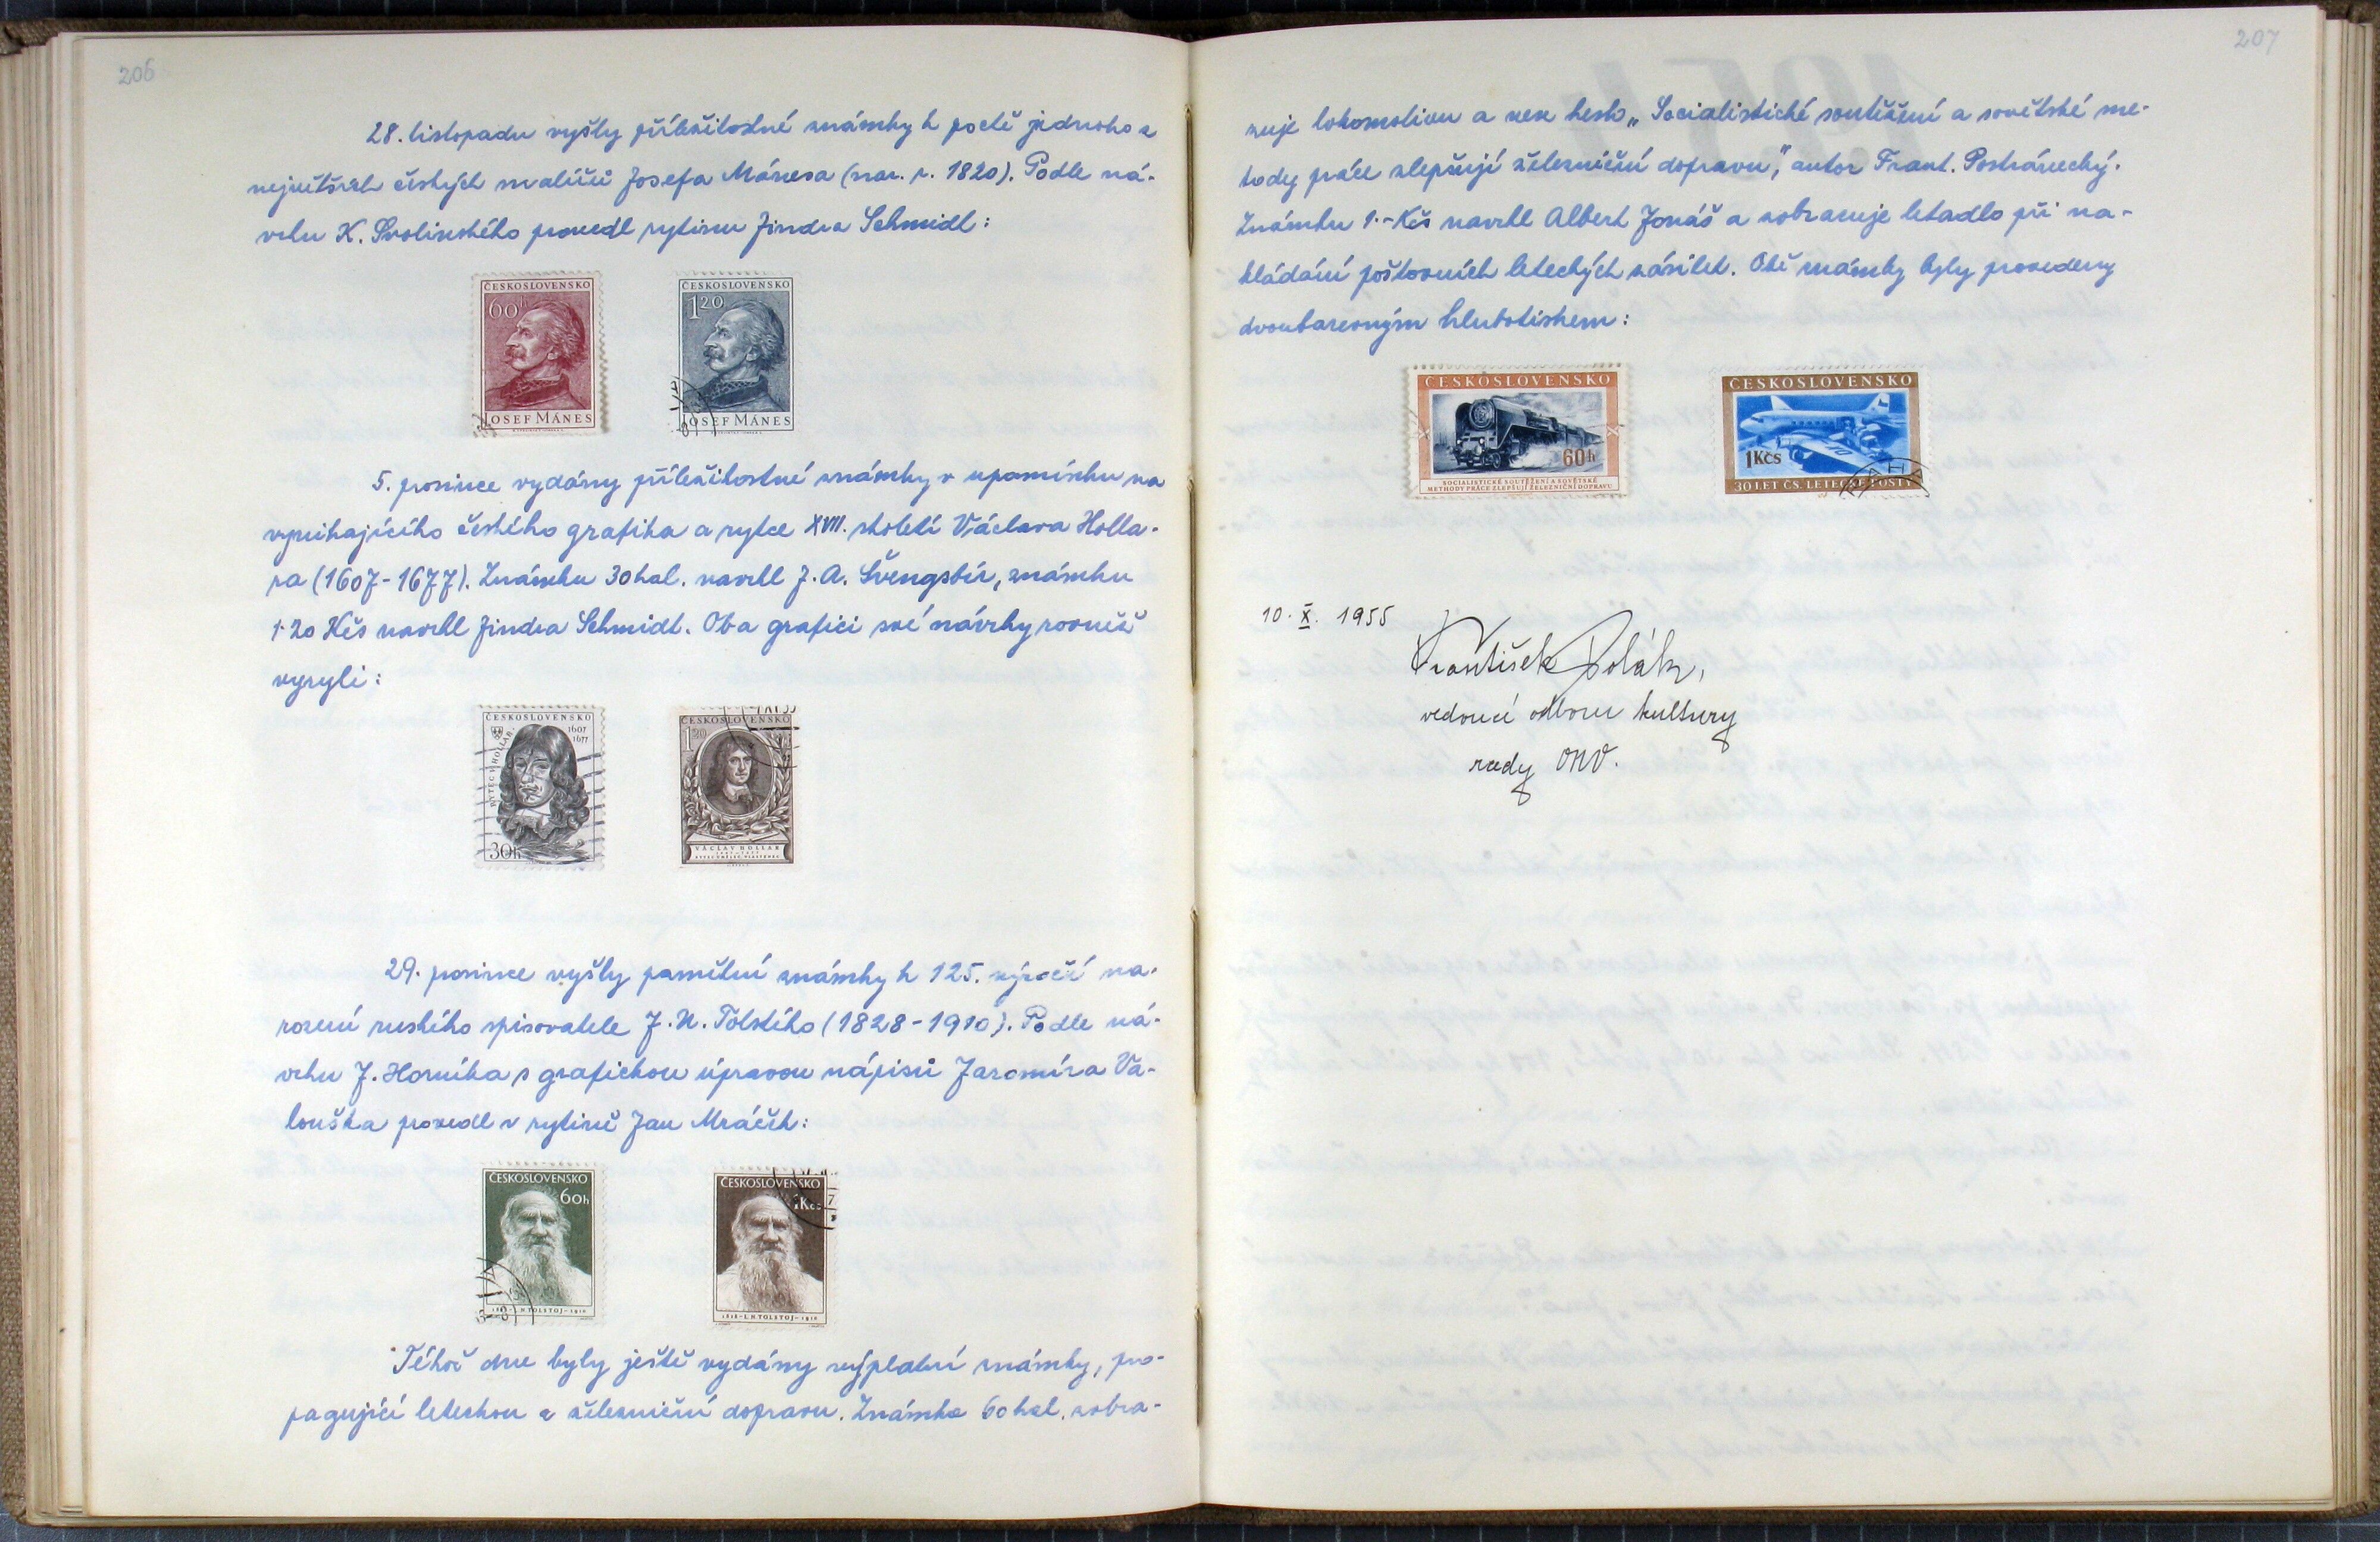 206
28. listopadu vyšly příležitostné známky k poctě jednoho z
největších českých malířů Josefa Mánesa (nar. r. 1820). Podle ná-
vrhu K. Svolinského provedl rytinu Jindra Schmidt:
ČESKOSLOVENSKO
60h
JOSEF MÁNES
ČESKOSLOVENSKO
1.20
JOSEF MÁNES
5. prosince vydány příležitostné známky v upomínku na
vynikajícího českého grafika a rytce XVII. století Václava Holla-
ra (1607-1677). Známku 30 hal. navrhl J. A. Švengsbír, známku
1·20 Kčs navrhl Jindra Schmidt. Oba grafici své návrhy rovněž
vyryli:
ČESKOSLOVENSKO
RYTEC V. HOLLAR
1607
1677
30h
ČESKOSLOVENSKO
1.20
VÁCLAV HOLLAR
29. prosince vyšly pamětní známky k 125. výročí na-
rození ruského spisovatele J. N. Tolstého (1828-1910). Podle ná-
vrhu J. Horníka s grafickou úpravou nápisů Jaromíra Va-
louška provedl v rytině Jan Mráček:
ČESKOSLOVENSKO
60h
1828-L.N.TOLSTOJ-1910
ČESKOSLOVENSKO
1Kčs
1828-L.N.TOLSTOJ-1910
Téhož dne byly ještě vydány výplatní známky, pro-
pagující leteckou a železniční dopravu. Známka 60 hal. zobra-
207
zuje lokomotivu a nese heslo „Socialistické soutěžení a sovětské me-
tody práce zlepšují železniční dopravu", autor Frant.
Známku 1.- Kčs navrhl Albert Jonáš a zobrazuje letadlo při na-
kládání poštovních leteckých zásilek. Obě známky byly provedeny
dvoubarevným hlubotiskem:
ČESKOSLOVENSKO
60h
SOCIALISTICKÉ SOUTĚŽENÍ A SOVĚTSKÉ
METHODY PRÁCE ZLEPŠUJÍ ŽELEZNIČNÍ DOPRAVU
ČESKOSLOVENSKO
1Kčs
30 LET ČS. LETECKÉ POŠTY
10. X. 1955
František Polák,
vedoucí odboru kultury
rady ONV.